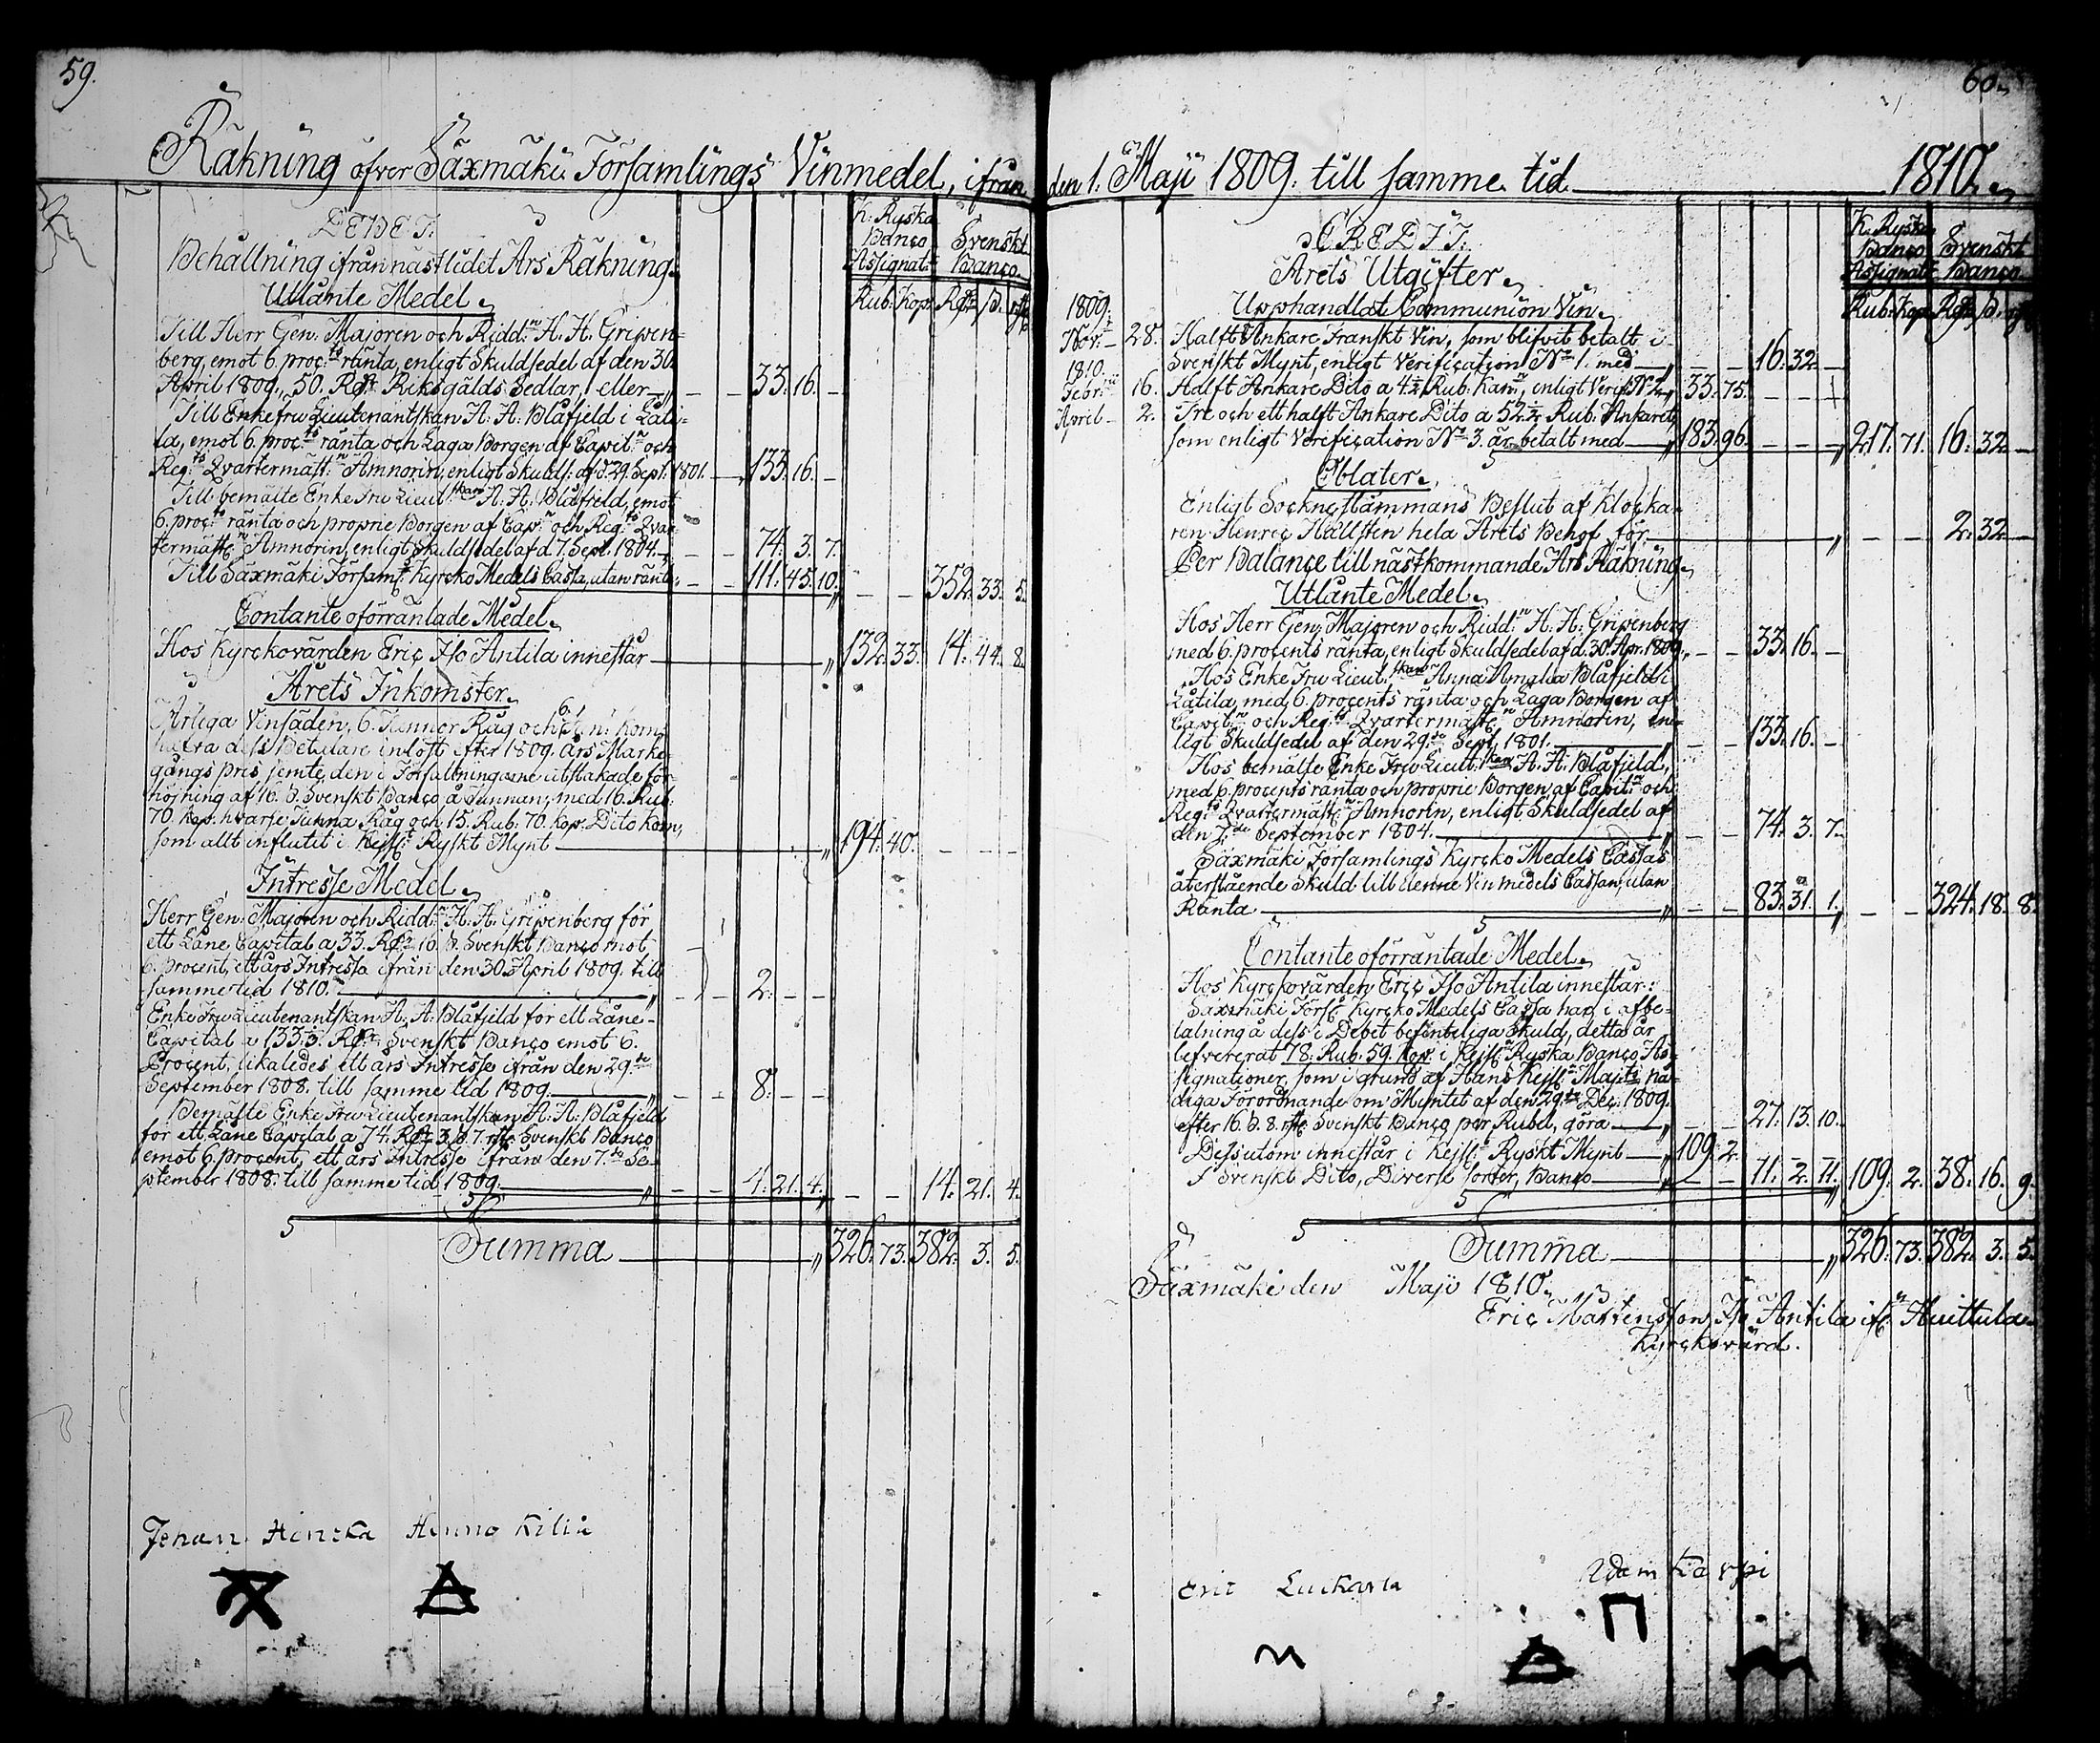 59.
Räkning öfver Säxmäki Församlings Vinmedel, ifrån
DEBET.
K: Ryska Banco Assignat: Svenskt Banco
Behållning ifrån nästlidet Års Räkning.
Rub: Kop: Rdr ß. rst.
Utlånte Medel.
Till Herr Gen: Majoren och Ridd:n H. H. Gripen-
berg, emot 6. proc:ts ränta, enligt Skuldsedel af den 30.
April 1809., 50. Rdr Riksgälds Sedlar, eller „ — — 33. 16. —
Till Enke Fru Lieutenantskan A: A: Blåfjeld i Låti-
la, emot 6. proc:ts ränta och Laga Borgen af Capit:n och
Reg:ts Qvartermäst:n Amnorin, enligt Skulds: af d. 29. Sept. 1801. — 133. 16. —
Till bemälte Enke Fru Lieut:skan A: A: Blåfjeld, emot
6. proc:ts ränta och proprie Borgen af Cap:n och Reg:ts Qvar-
termäst:n Amnorin, enligt Skuldsedel af d. 7. Sept. 1804. „ — — 74. 3. 7.
Till Säxmäki Försam: Kyrcko Medels Cassa, utan ränta „ — — 111. 45. 10. „ — — 352. 33. 5.
Contante oförräntade Medel.
Hos Kyrckovärden Eric Iso Antila innestår „ 132. 33. 14. 44. 8.
Årets Inkomster.
Årliga Vinsäden, 6. Tunnor Råg och 6. Tun: Korn,
hafva dess Betalare inlöst efter 1809. Års Marke-
gångs pris jemte den i Författningarne utstakade för-
höjning af 16. ß. Svenskt Banco å Tunnan, med 16. Rub:
70. Kop. hvarje Tunna Råg och 15. Rub: 70. Kop. Dito Korn,
som allt influtit i Kejsl: Ryskt Mynt „ 194. 40. — — —
Intresse Medel.
Herr Gen: Majoren och Ridd:n H. H. Gripenberg för
ett Låne Capital a 33. Rdr 16. ß. Svenskt Banco mot
6. procent, ett års Intresse ifrån den 30. April 1809. till
samme tid 1810. „ — — 2. — —
Enke Fru Lieutenantskan A: A: Blåfjeld för ett Låne-
Capital a 133⅓. Rdr. Svenskt Banco emot 6.
Procent, likaledes ett års Intresse ifrån den 29.de
September 1808. till samme tid 1809. „ — — 8. — —
Bemälte Enke Fru Lieutenantskan A: A: Blåfjeld
för ett Låne Capital a 74. Rdr 3. ß. 7. rst. Svenskt Banco
emot 6. procent, ett års Intresse ifrån den 7.de Se-
ptember 1808. till samme tid 1809. „ — — 4. 21. 4. — — 14. 21. 4.
Summa „ 326. 73. 382. 3. 5.
Johan Hencka Henno Kiliä
60.
den 1. Maji 1809. till samme tid 1810.
CREDIT.
K: Ryska Banco Assignat: Svenskt Banco
Årets Utgifter.
Rub: Kop: Rdr ß. rst.
Upphandlat Communion Vin.
1809.
Nov: 28. Halft Ankare Franskt Vin, som blifvit betalt i
Svenskt Mynt, enligt Verification N:o 1. med „ — — 16. 32. —
1810.
Febr: 16. Halft Ankare Dito a 4½ Rub: Kan:, enligt Verif: N:o 2. „ 33. 75. — — —
April 2. Tre och ett halft Ankare Dito a 52½ Rub: Ankaret,
som enligt Verification N:o 3. är betalt med „ 183. 96. — — — „ 217. 71. 16. 32. —
Oblater.
Enligt Sockne stämmans Beslut af Klocka-
ren Henric Hällsten hela Årets Behof för „ — — 2. 32. —
Per Balance till nästkommande Års Räkning.
Utlånte Medel.
Hos Herr Gen: Majoren och Ridd:n H. H. Gripenberg
med 6. procents ränta, enligt Skuldsedel af d. 30. Apr. 1809. „ — — 33. 16. —
Hos Enke Fru Lieut:skan Anna Amalia Blåfjeld i
Låtila, med 6. procents ränta och Laga Borgen af
Capit:n och Reg:ts Qvartermäst:n Amnorin, en-
ligt Skuldsedel af den 29.de Sept. 1801. „ — — 133. 16. —
Hos bemälte Enke Fru Lieut:skan A: A: Blåfjeld,
med 6. procents ränta och proprie Borgen af Capit:n och
Reg:ts Qvartermäst:n Amnorin, enligt Skuldsedel af
den 7.de September 1804. „ — — 74. 3. 7.
Säxmäki Församlings Kyrcko Medels Cassas
återstående Skuld till denne Vinmedels Cassan, utan
Ränta „ — — 83. 31. 1. „ — — 324. 18. 8.
Contante oförräntade Medel.
Hos Kyrckovärden Eric Iso Antila innestår:
Säxmäki Förs: Kyrcko Medels Cassa har i afbe-
talning å dess i Debet befinteliga Skuld, detta år
lefvererat 78. Rub. 59. Kop. i Kejsl: Ryska Banco As-
signationer, som i grund af Hans Kejsl: Maj:ts Nå-
diga Förordnande om Myntet af den 29.de Dec. 1809.
efter 16. ß. 8. rst. Svenskt Banco per Rubel, göra „ — — 27. 13. 10.
Dessutom innestår i Kejsl: Ryskt Mynt „ 109. 2. — — —
I Svenskt Dito, Diverse sorter, Banco „ — — 11. 2. 11. 109. 2. 38. 16. 9.
Summa „ 326. 73. 382. 3. 5.
Säxmäki den Maji 1810.
Eric Mårtensson Iso Antila ifr:n Huittula
Kyrckovärd.
Eric Luckarla Adam Karppi